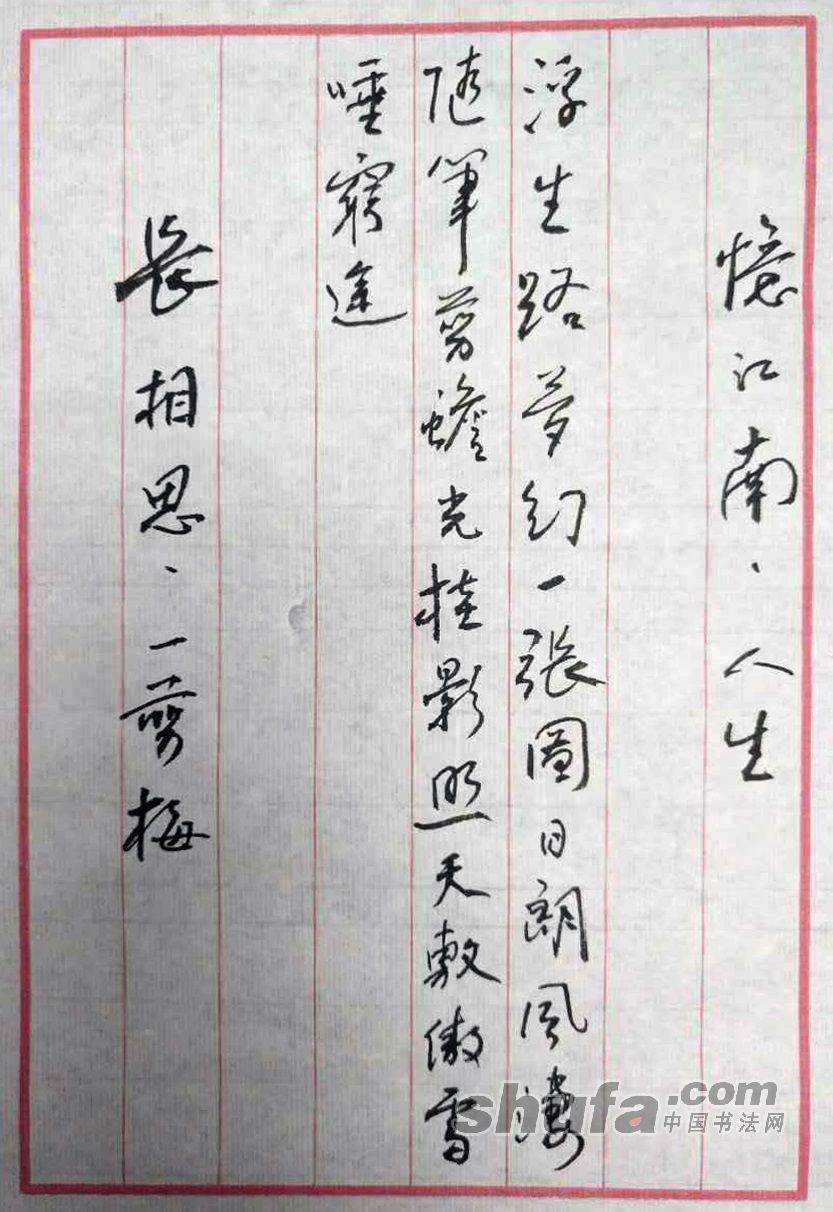 憶江南、人生
浮生路夢幻一張圖日朗風淒
隨筆剪蟾光桂影照天敷傲雪
唾窮途
長相思、一剪梅
shufa.com 中国书法网